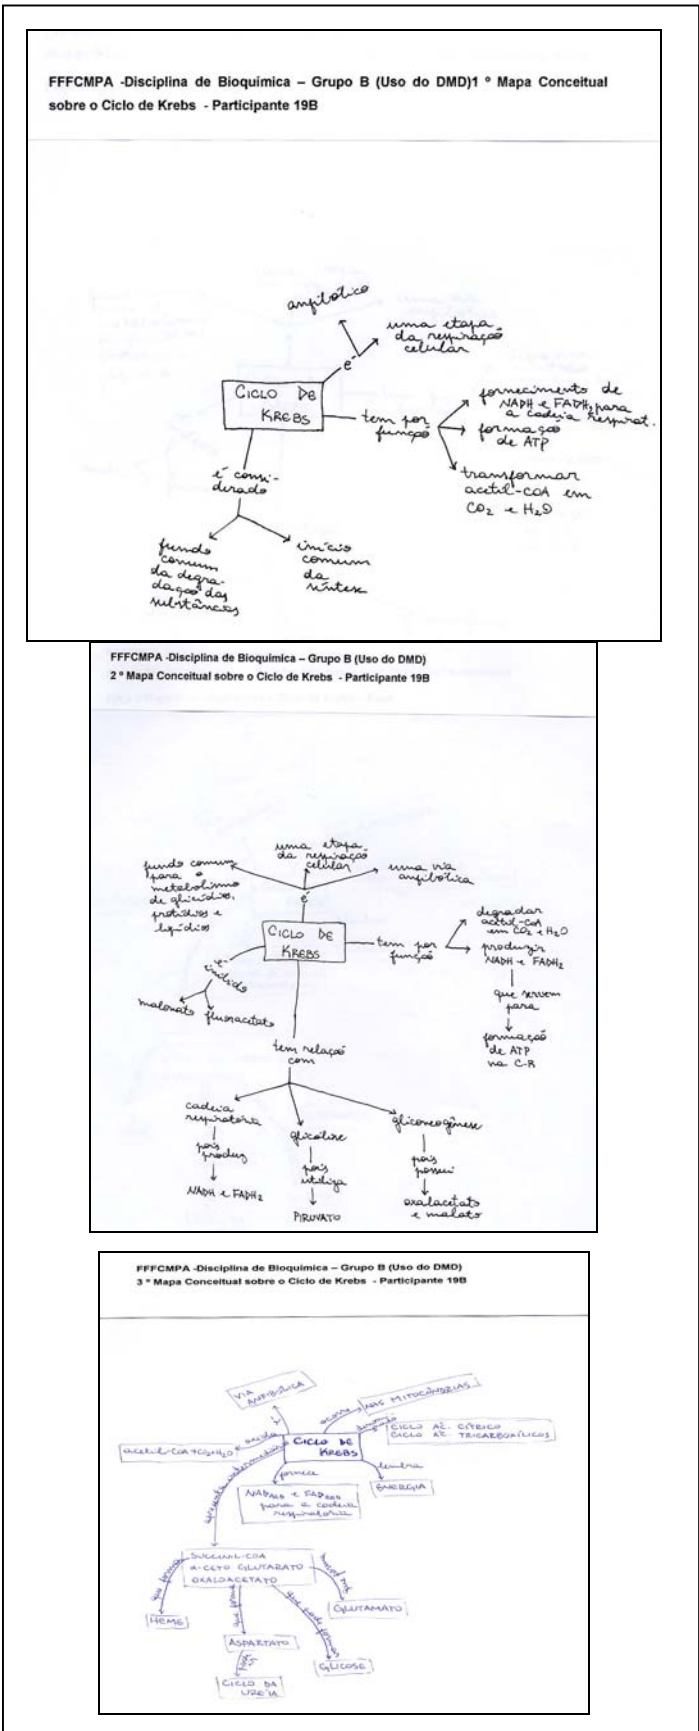 FFFCMPA -Disciplina de Bioquímica – Grupo B (Uso do DMD)1 º Mapa Conceitual
sobre o Ciclo de Krebs - Participante 19B
anfibólico
uma etapa
da respiração
celular
é
CICLO DE
KREBS
tem por
função
fornecimento de
NADH e FADH2 para
a cadeia respirat.
formação
de ATP
transformar
acetil-COA em
CO2 e H2O
é consi-
derado
fundo
comum
da degra-
dação das
substâncias
início
comum
da
síntese
FFFCMPA -Disciplina de Bioquímica – Grupo B (Uso do DMD)
2 º Mapa Conceitual sobre o Ciclo de Krebs - Participante 19B
fundo comum
para o
metabolismo
de glicídios,
protídios e
lipídios
uma etapa
da respiração
celular
uma via
anfibólica
é
CICLO DE
KREBS
tem por
função
degradar
acetil-COA
em CO2 e H2O
produzir
NADH e FADH2
que servem
para
formação
de ATP
na C-R
é
inibido
malonato
fluoracetato
tem relação
com
cadeia
respiratória
pois
produz
NADH e FADH2
glicólise
pois
utiliza
PIRUVATO
gliconeogênese
pois
possui
oxalacetato
e malato
FFFCMPA -Disciplina de Bioquímica – Grupo B (Uso do DMD)
3 º Mapa Conceitual sobre o Ciclo de Krebs - Participante 19B
VIA
ANFIBÓLICA
é
ocorre
NAS MITOCÔNDRIAS
CICLO AC. CÍTRICO
CICLO AC. TRICARBOXÍLICOS
CICLO DE
KREBS
oxida
acetil-COA→CO2+H2O
lembra
ENERGIA
fornece
NAD e FAD
para a cadeia
respiratória
apresenta intermediários
SUCCINIL-COA
α-CETO GLUTARATO
OXALOACETATO
que forma
HEME
que forma
ASPARTATO
CICLO DA
URÉIA
que pode formar
GLICOSE
GLUTAMATO